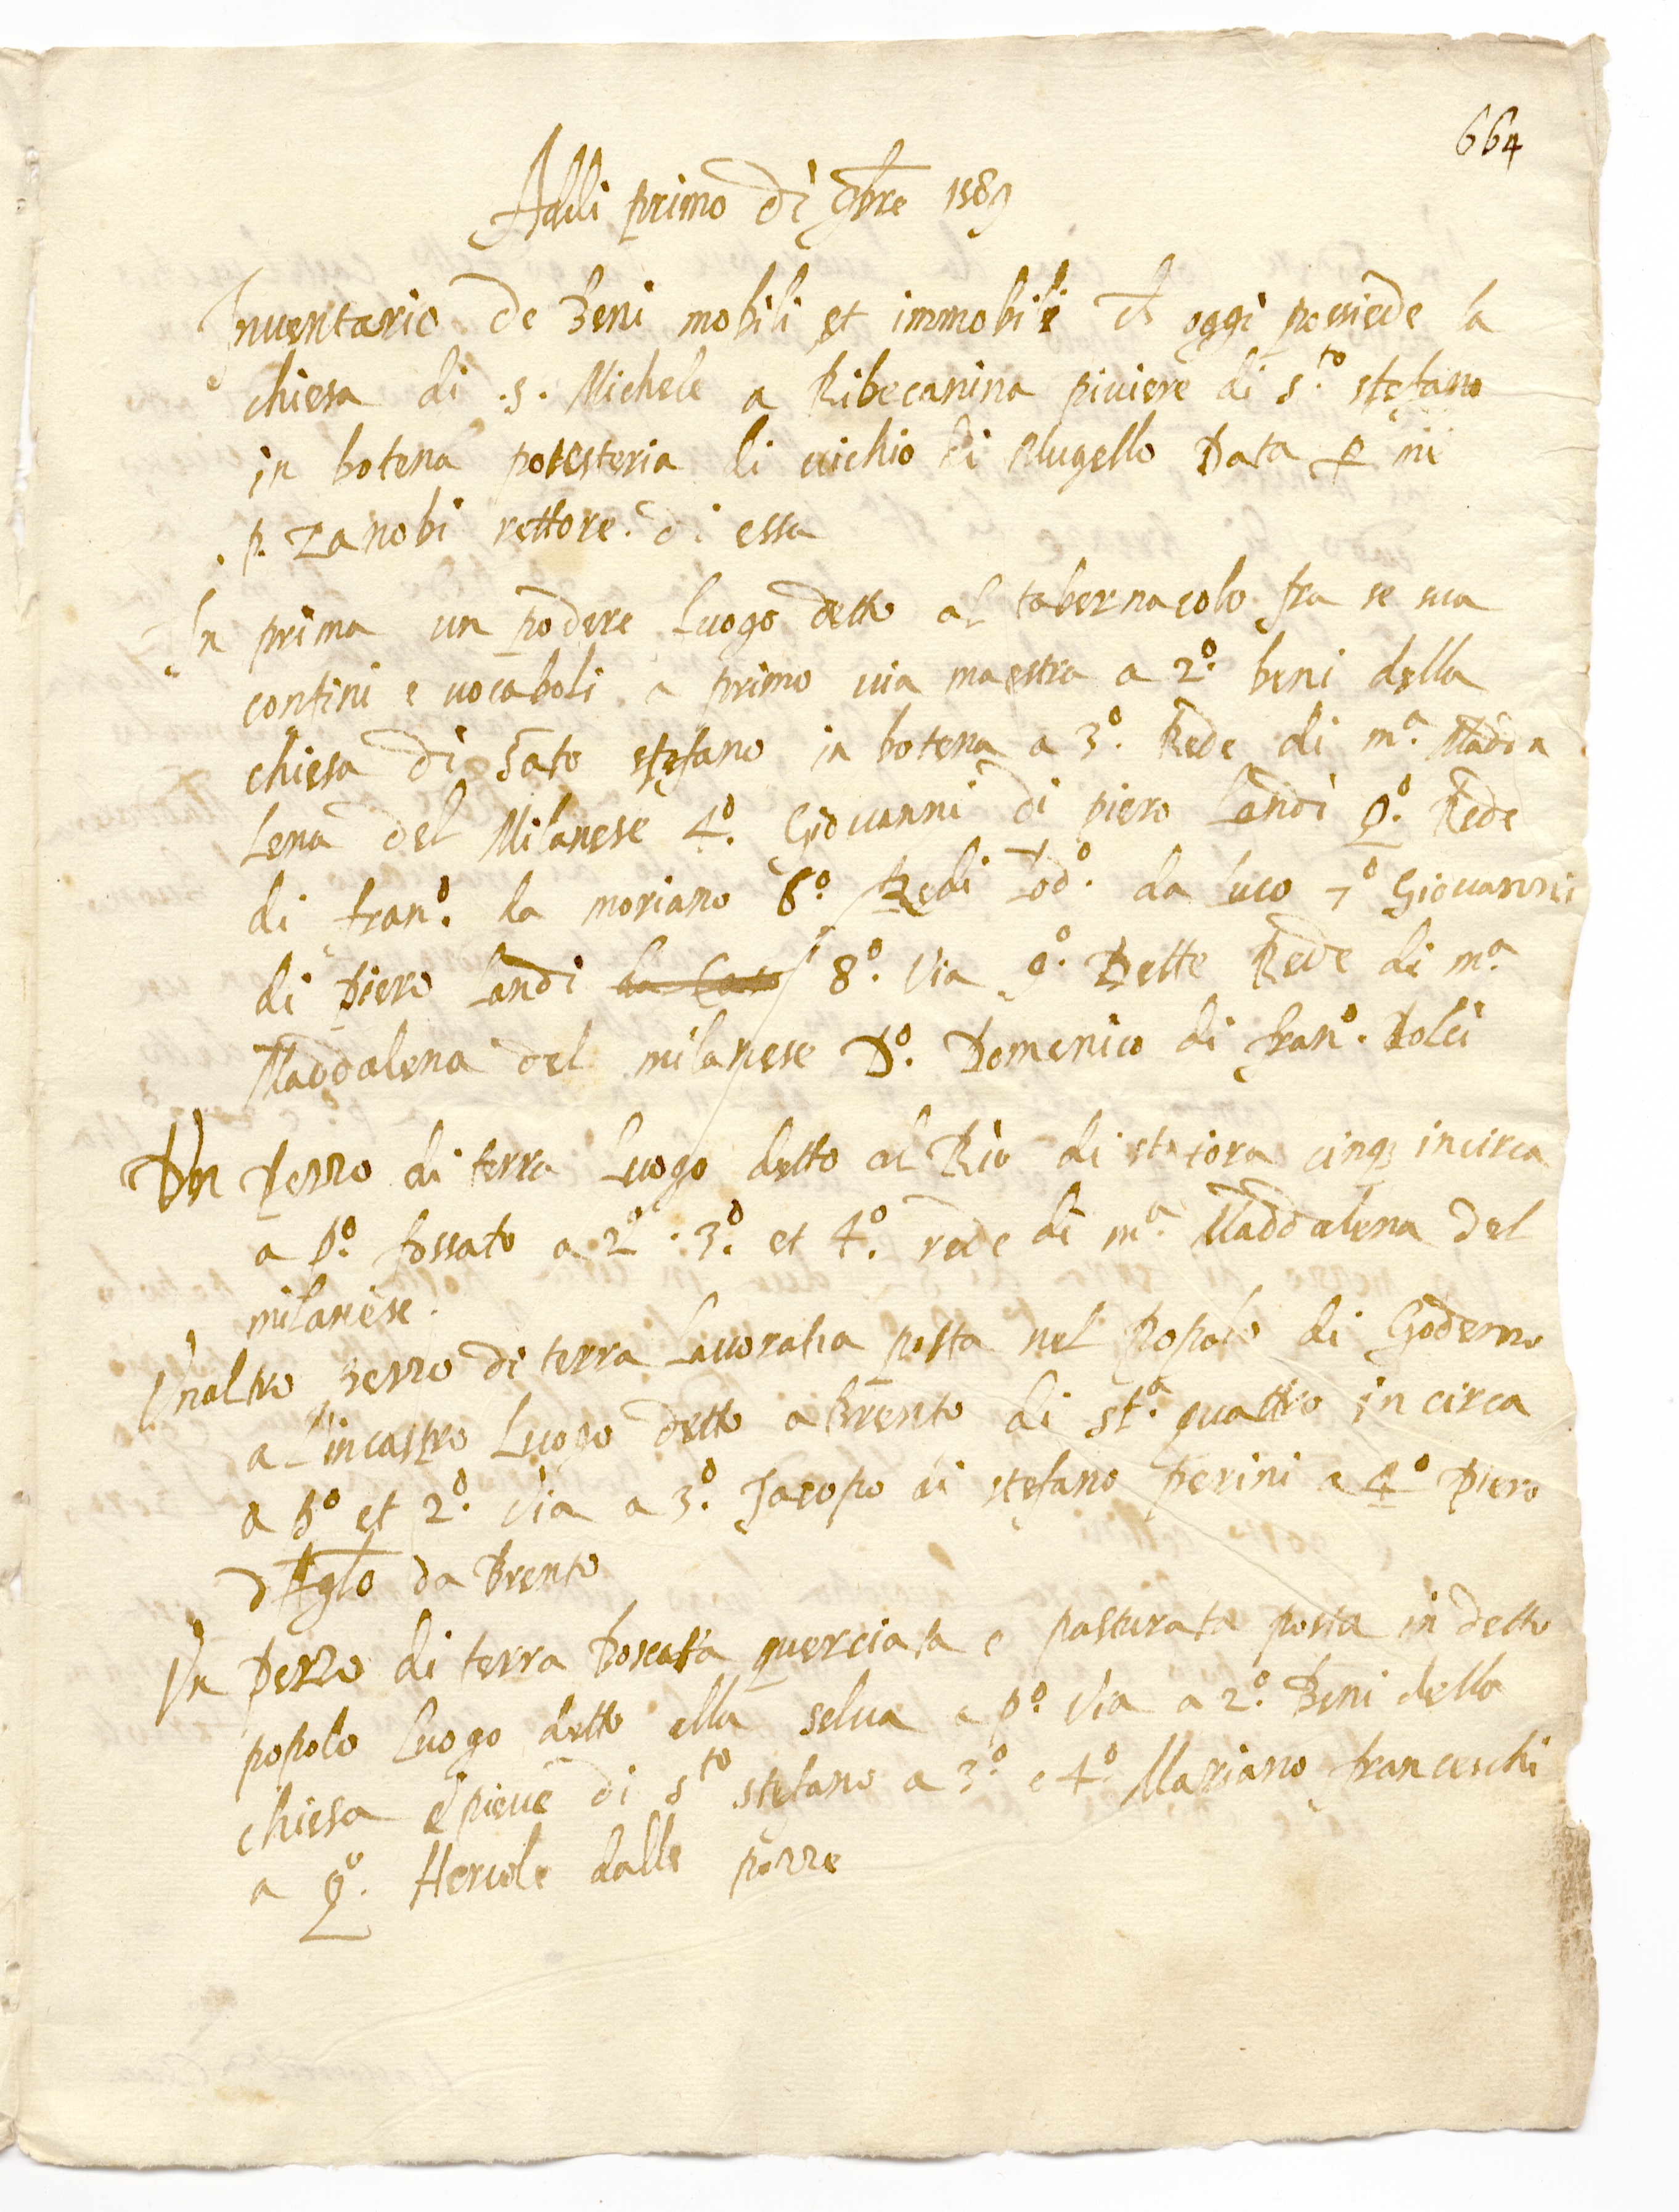 664
Addi primo di 9bre 1589
Inventario de Beni mobili et immobili ch oggi possiede la
chiesa di .s. Michele a Ribecanina piviere di s.to stefano
in botena potesteria di vichio di Mugello Data p me
p. Zanobi rettore di essa
In prima un podere luogo detto al tabernacolo fra se sua
confini e vocaboli a primo via maestra a 2º. beni della
chiesa di Sato stefano in botena a 3º. Rede di m.a Madda
lena del Milanese 4º. Giovanni di piero Landi Rede
di fran.º da moriano 6º. Redi da luco 7º Giovanni
di Piero Landi 8º. Via 9º. Dette Rede di m.a
Maddalena del milanese Domenico di fran.º Dolci
Un Pezzo di terra Luogo detto al Rio di staiora cinq3 incirca
a pº. fossato a 2º. 3º. et 4º. rede di m.a Maddalena del
milanese.
Unaltro pezzo di terra Lavoratia posta nel Popolo di Godenzo
a Lincastro Luogo detto a Brento di st.a quattro in circa
a pº et 2º. Via a 3º. Jacopo di stefano perini a 4º Piero
dAglo da Brento
Un Pezzo di terra boscata querciata e pasturata posta in detto
popolo Luogo detto alla selva a pº. Via a 2º. Beni della
chiesa e pieve di s.to stefano a 3º. e 4º Mariano franceschi
a Hercole dalle pozze